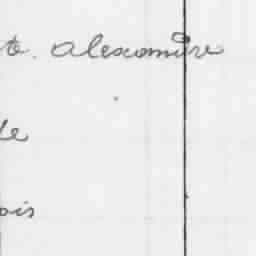 te. Alexandre
de
ois